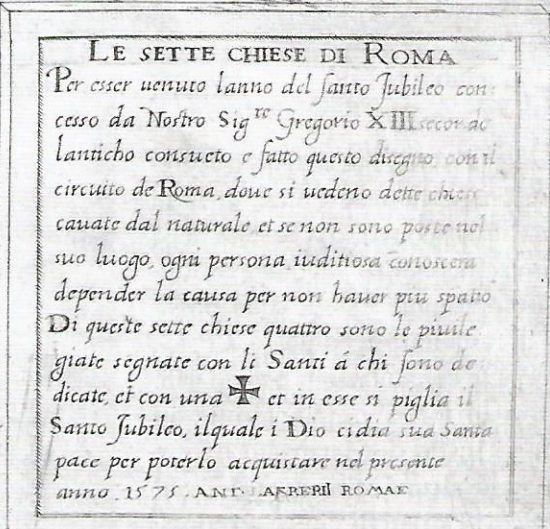 LE SETTE CHIESE DI ROMA
Per esser uenuto lanno del santo Jubileo con
cesso da Nostro Sig.re Gregorio XIII secondo
lanticho consueto e fatto questo disegno, con il
circuito de Roma, doue si uedeno dette chiese
cauate dal naturale, et se non sono poste nel
suo luogo, ogni persona iuditiosa conoscera
depender la causa per non hauer piu spatio
Di queste sette chiese quattro sono le piuile
giate segnate con li Santi á chi sono de
dicate, et con una ✠ et in esse si piglia il
Santo Jubileo, ilquale i Dio cidia sua Santa
pace per poterlo acquistare nel presente
anno. 1575. ANT. LAFRERII ROMAE